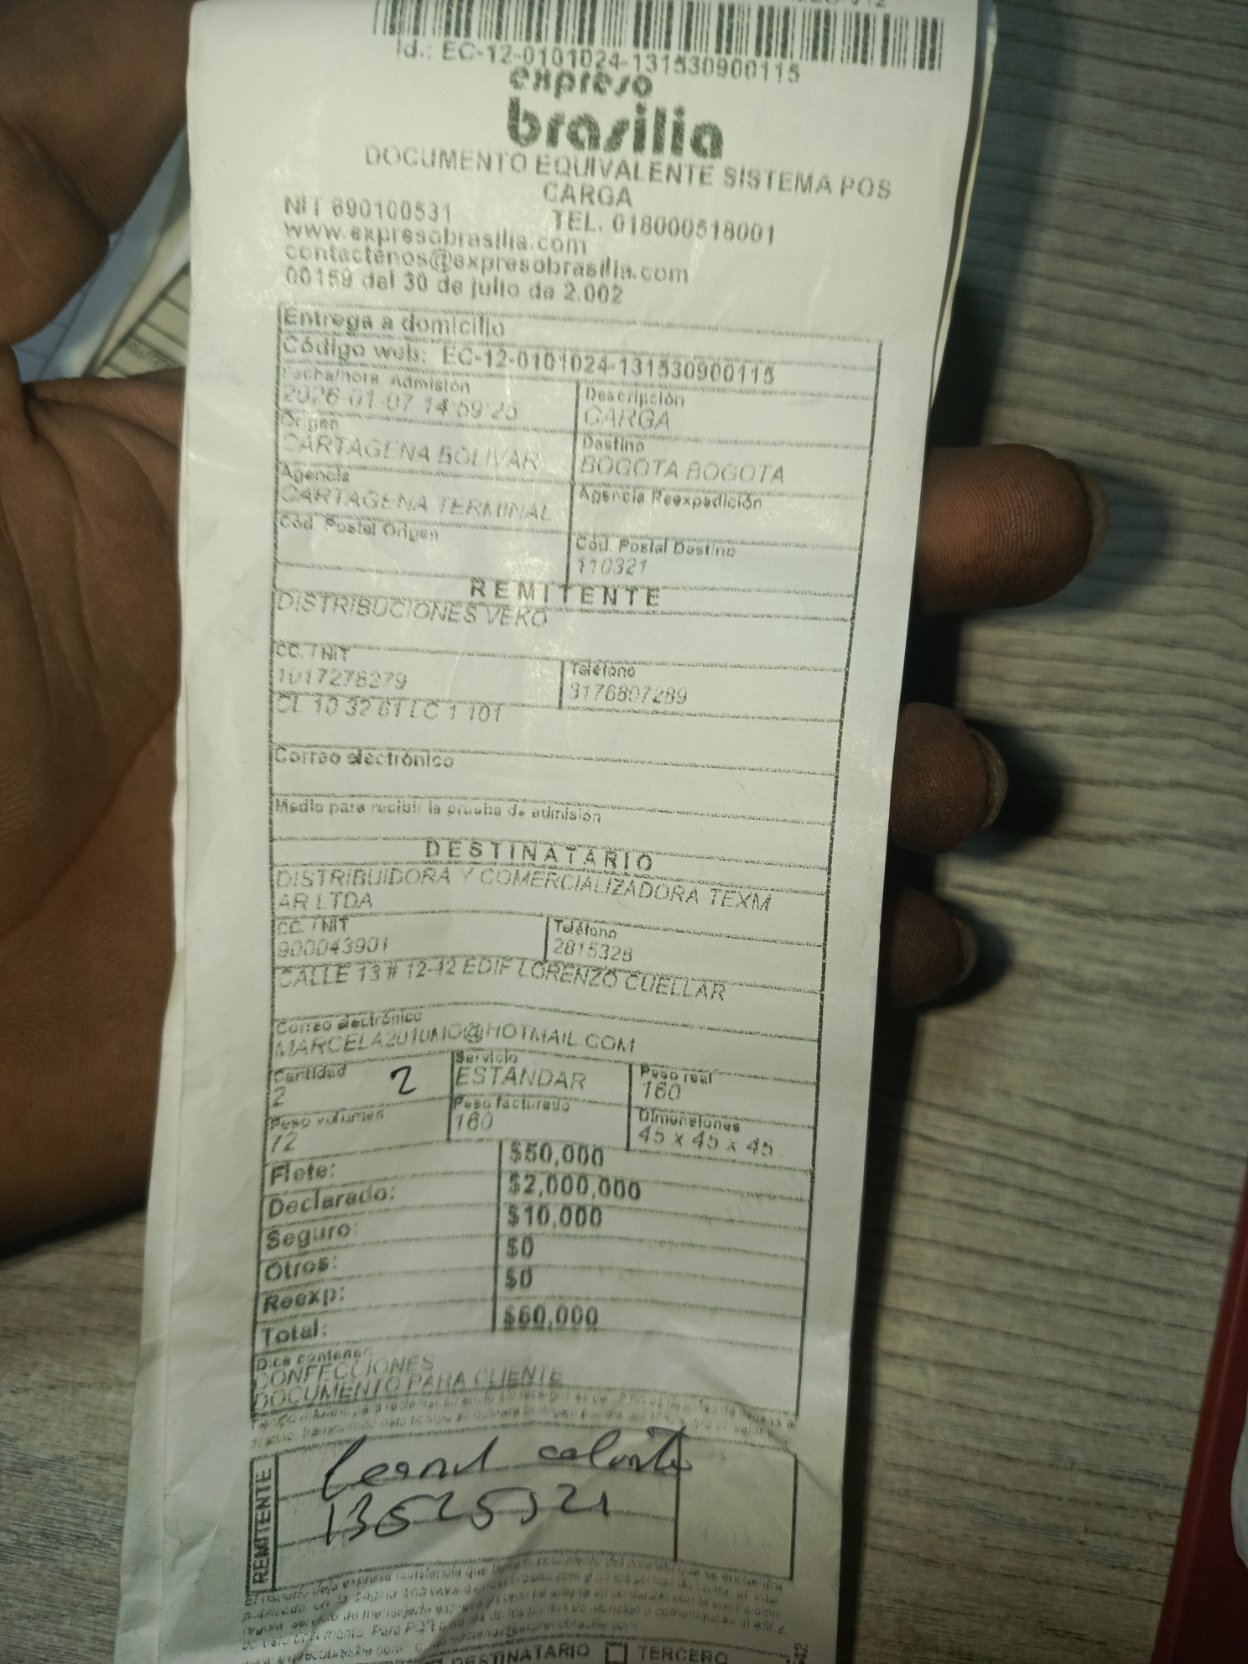 Id.: EC-12-0101024-131530900115
expreso
brasilia
DOCUMENTO EQUIVALENTE SISTEMA POS
CARGA
NIT 890100531 TEL. 018000518001
www.expresobrasilia.com
contactenos@expresobrasilia.com
00159 del 30 de julio de 2.002
Entrega a domicilio
Código web: EC-12-0101024-131530900115
Fecha/hora Admisión Descripción
2026-01-07 14:59:25 CARGA
Origen Destino
CARTAGENA BOLIVAR BOGOTA BOGOTA
Agencia Agencia Reexpedición
CARTAGENA TERMINAL
Cód. Postal Origen Cód. Postal Destino
110321
REMITENTE
DISTRIBUCIONES VERO
CC. / NIT Teléfono
1017278279 3176807289
CL 10 32 61 LC 1 101
Correo electrónico
Medio para recibir la prueba de admisión
DESTINATARIO
DISTRIBUIDORA Y COMERCIALIZADORA TEXM
AR LTDA
CC. / NIT Teléfono
900043901 2815328
CALLE 13 # 12-12 EDIF LORENZO CUELLAR
Correo electrónico
MARCELA2010MO@HOTMAIL.COM
Cantidad Servicio Peso real
2 2 ESTANDAR 160
Peso volumen Peso facturado Dimensiones
72 160 45 x 45 x 45
Flete: $50,000
Declarado: $2,000,000
Seguro: $10,000
Otros: $0
Reexp: $0
Total: $60,000
Dice contener
CONFECCIONES
DOCUMENTO PARA CLIENTE
REMITENTE
DESTINATARIO TERCERO